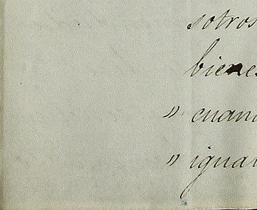 sotros
bienes
" cuan
" igual